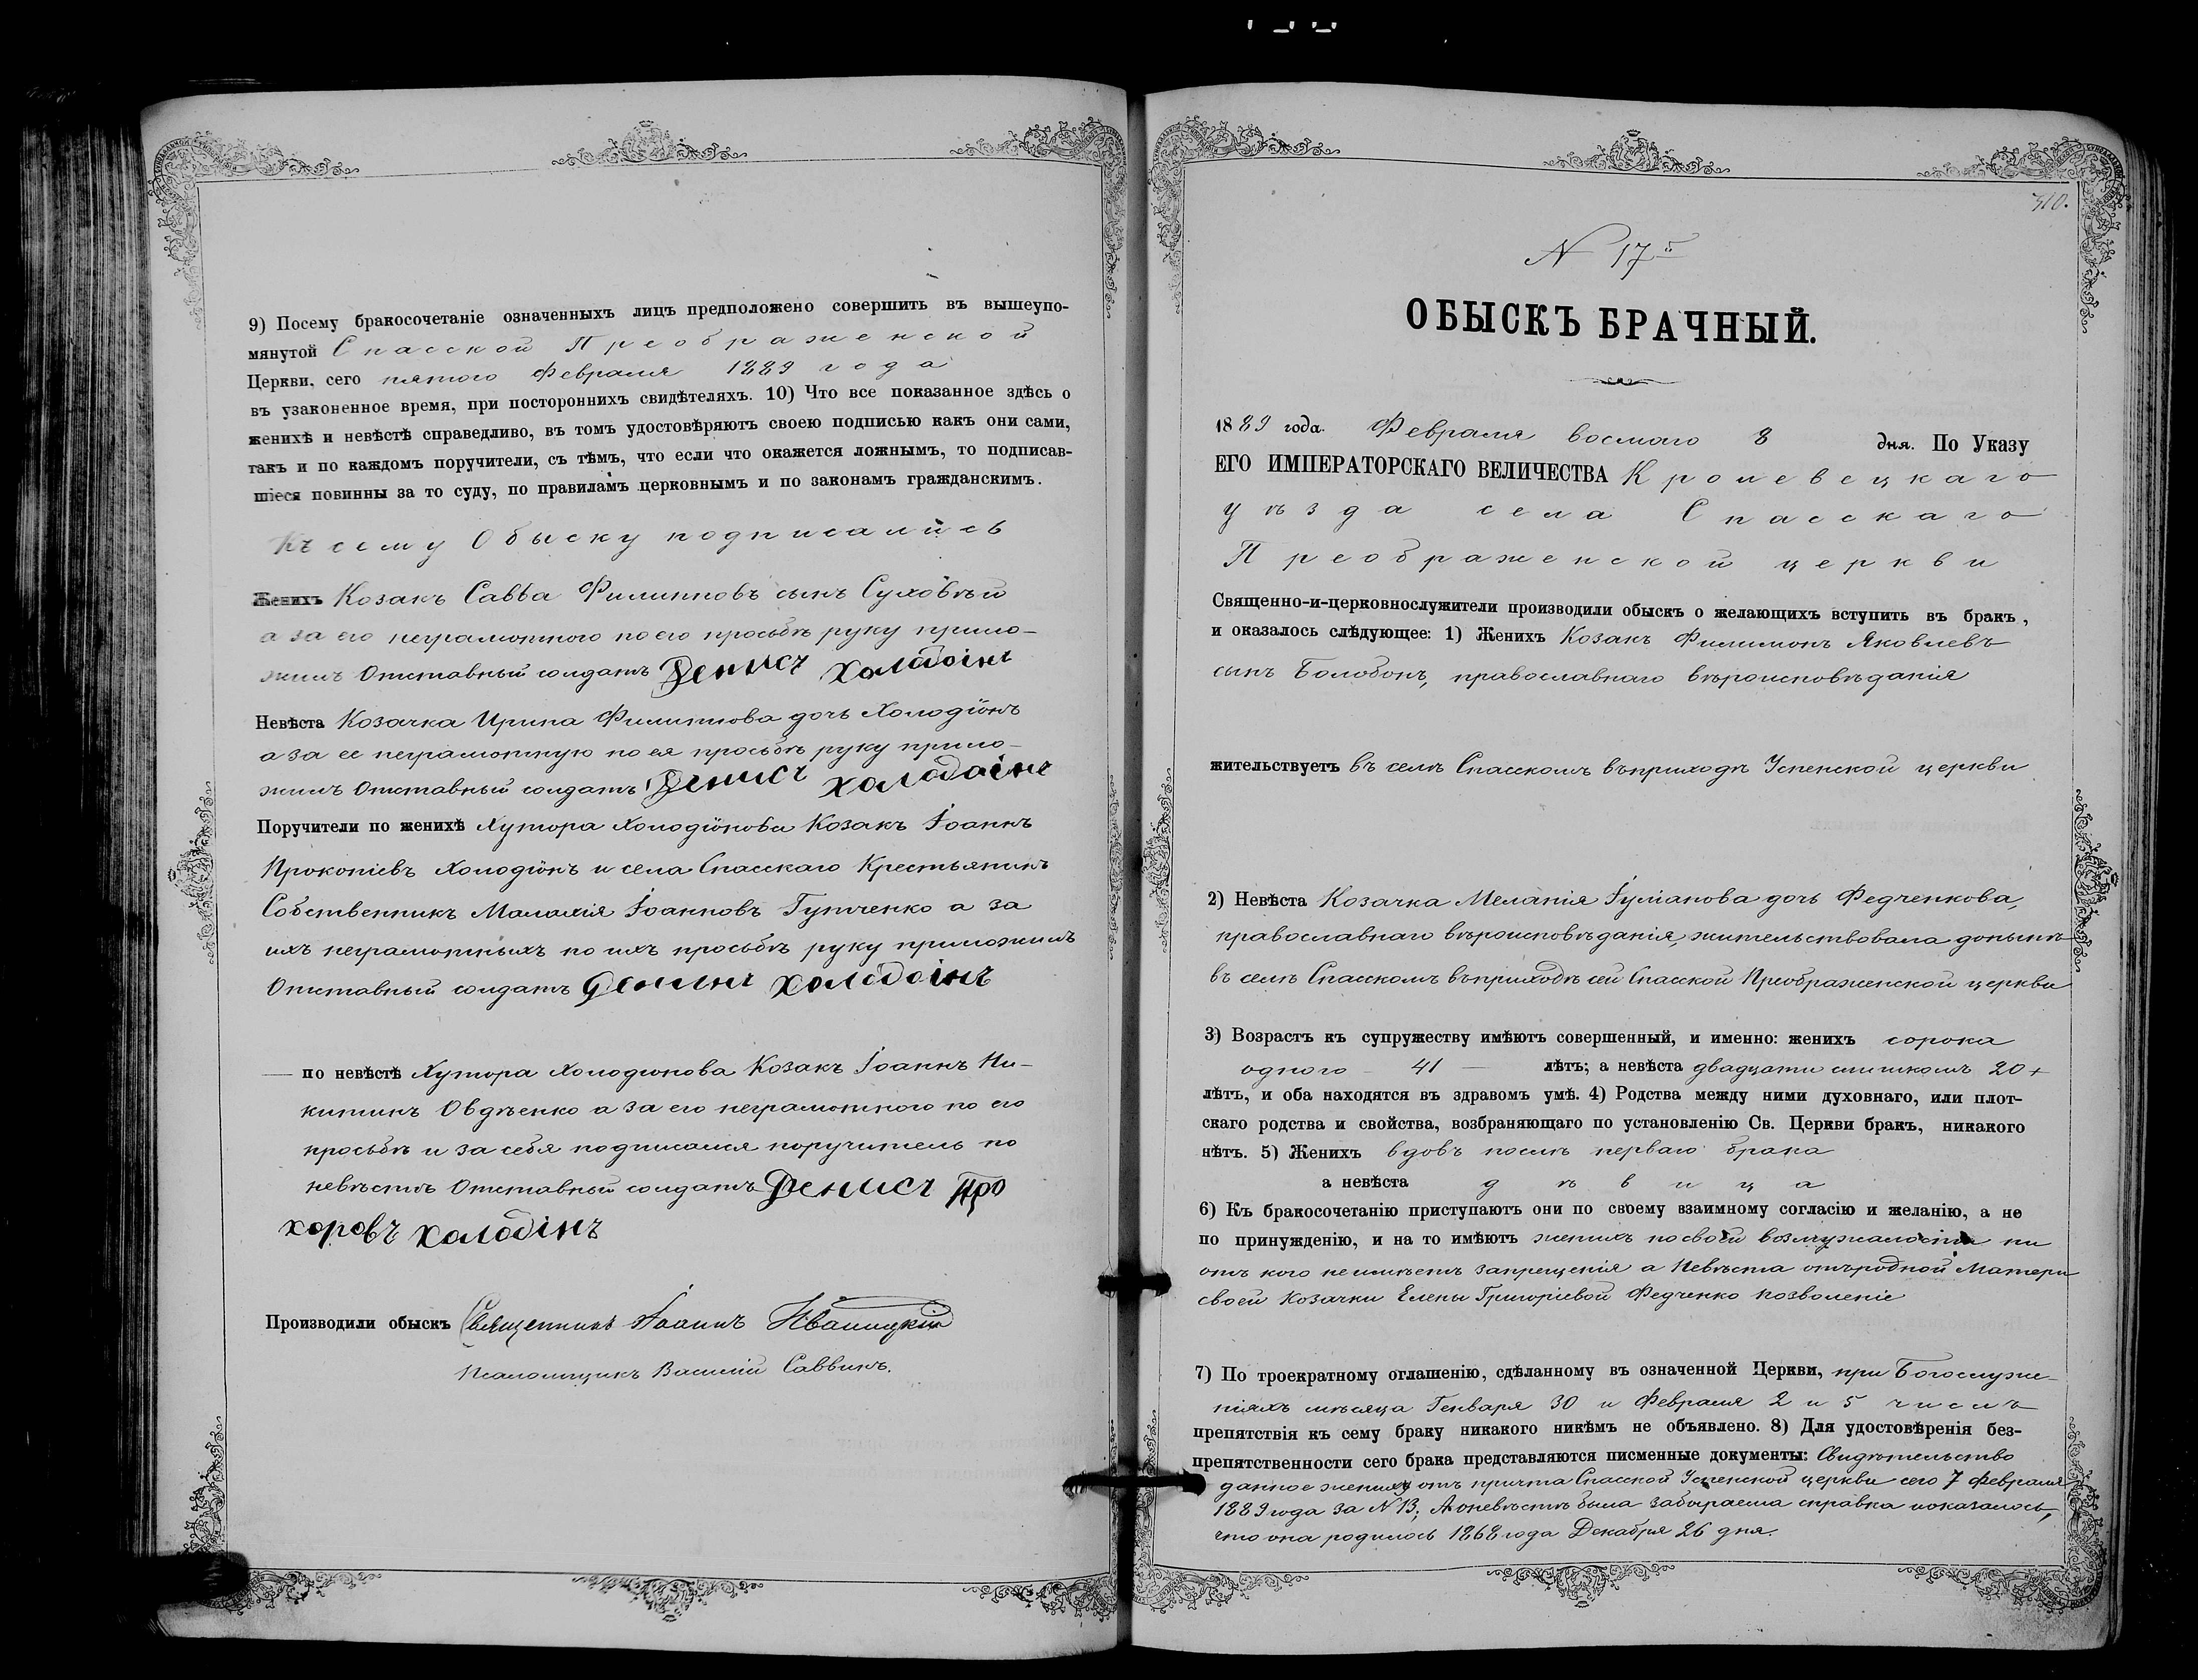 9) Посему бракосочетаніе означенныхъ лицъ предположено совершить въ вышеупо-
мянутой Спасской Преображенской
Церкви, сего пятого Февраля 1889 года
въ узаконенное время, при постороннихъ свидѣтеляхъ. 10) Что все показанное здѣсь о
женихѣ и невѣстѣ справедливо, въ томъ удостовѣряютъ своею подписью какъ они сами,
такъ и по каждомъ поручители, съ тѣмъ, что если что окажется ложнымъ, то подписав-
шіеся повинны за то суду, по правиламъ церковнымъ и по законамъ гражданскимъ.
Къ сему Обыску подписались
Женихъ Козакъ Савва Филипповъ сынъ Суховѣй
а за его неграмотного по его просьбѣ руку прило-
жилъ Отставный солдатъ Денисъ Холодоінъ
Невѣста Козачка Ирина Филиппова дочь Холодіонъ
а за ее неграмотную по ея просьбѣ руку прило-
жилъ Отставный солдатъ Денисъ Холодоінъ
Поручители по женихѣ Хутора Холодіонова Козакъ Іоаннъ
Прокопіевъ Холодіонъ и села Спасскаго Крестьянинъ
Собственникъ Малахія Іоанновъ Гутченко а за
ихъ неграмотныхъ по ихъ просьбѣ руку приложилъ
Отставный солдатъ Холодоінъ
— по невѣстѣ Хутора Холодіонова Козакъ Іоаннъ Ни-
китинъ Овдѣенко а за его неграмотного по его
просьбѣ и за себя подписался поручитель по
невѣстѣ Отставный солдатъ Денисъ Про
хоровъ Холодінъ
Производили обыскъ Священникъ Іоаннъ Иваницкій
Псаломщикъ Василій Саввинъ.
310.
N 17й
ОБЫСКЪ БРАЧНЫЙ.
1889 года. Февраля восмаго 8 дня. По Указу
ЕГО ИМПЕРАТОРСКАГО ВЕЛИЧЕСТВА Кролевецкаго
уѣзда села Спасскаго
Преображенской церкви
Священно-и-церковнослужители производили обыскъ о желающихъ вступить въ бракъ,
и оказалось слѣдующее: 1) Женихъ Козакъ Филимонъ Яковлевъ
сынъ Болобонъ, православнаго вѣроисповѣданія
жительствуетъ въ селѣ Спасскомъ въ приходѣ Успенской церкви
2) Невѣста Козачка Меланія Іуліанова дочь Федченкова,
православнаго вѣроисповѣданія, жительствовала донынѣ
въ селѣ Спасскомъ въ приходѣ сей Спасской Преображенской церкви
3) Возрастъ къ супружеству имѣютъ совершенный, и именно: женихъ сорока
одного — 41 — лѣтъ; а невѣста двадцати слишкомъ 20+
лѣтъ, и оба находятся въ здравомъ умѣ. 4) Родства между ними духовнаго, или плот-
скаго родства и свойства, возбраняющаго по установленію Св. Церкви бракъ, никакого
нѣтъ. 5) Женихъ вдовъ послѣ перваго брака
а невѣста дѣвица
6) Къ бракосочетанію приступаютъ они по своему взаимному согласію и желанію, а не
по принужденію, и на то имѣютъ женихъ по своей возмужалости ни
отъ кого не имѣетъ запрещенія а Невѣста отъ родной Матери
своей Козачки Елены Григоріевой Федченко позволеніе
7) По троекратному оглашенію, сдѣланному въ означенной Церкви, при Богослуже-
ніяхъ мѣсяца Генваря 30 и Февраля 2 и 5 числъ
препятствія къ сему браку никакого никѣмъ не объявлено. 8) Для удостовѣренія без-
препятственности сего брака представляются писменные документы: Свидѣтельство
данное жениху отъ причта Спасской Успенской церкви сего 7 Февраля
1889 года за N 13; А о невѣстѣ была забираема справка показалось,
что она родилось 1868 года Декабря 26 дня.